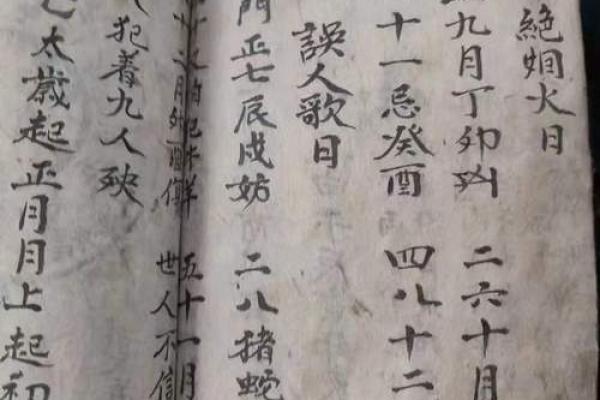 絕烟火日
九月丁卯凶 二六十月
十一忌癸酉 四八十二
誤人歌日
門正七辰戌妨 二八猪蛇
犯牛羊 五十一月
二月卯酉 世人不信
犯着九人殃
太歳起正月月上起初